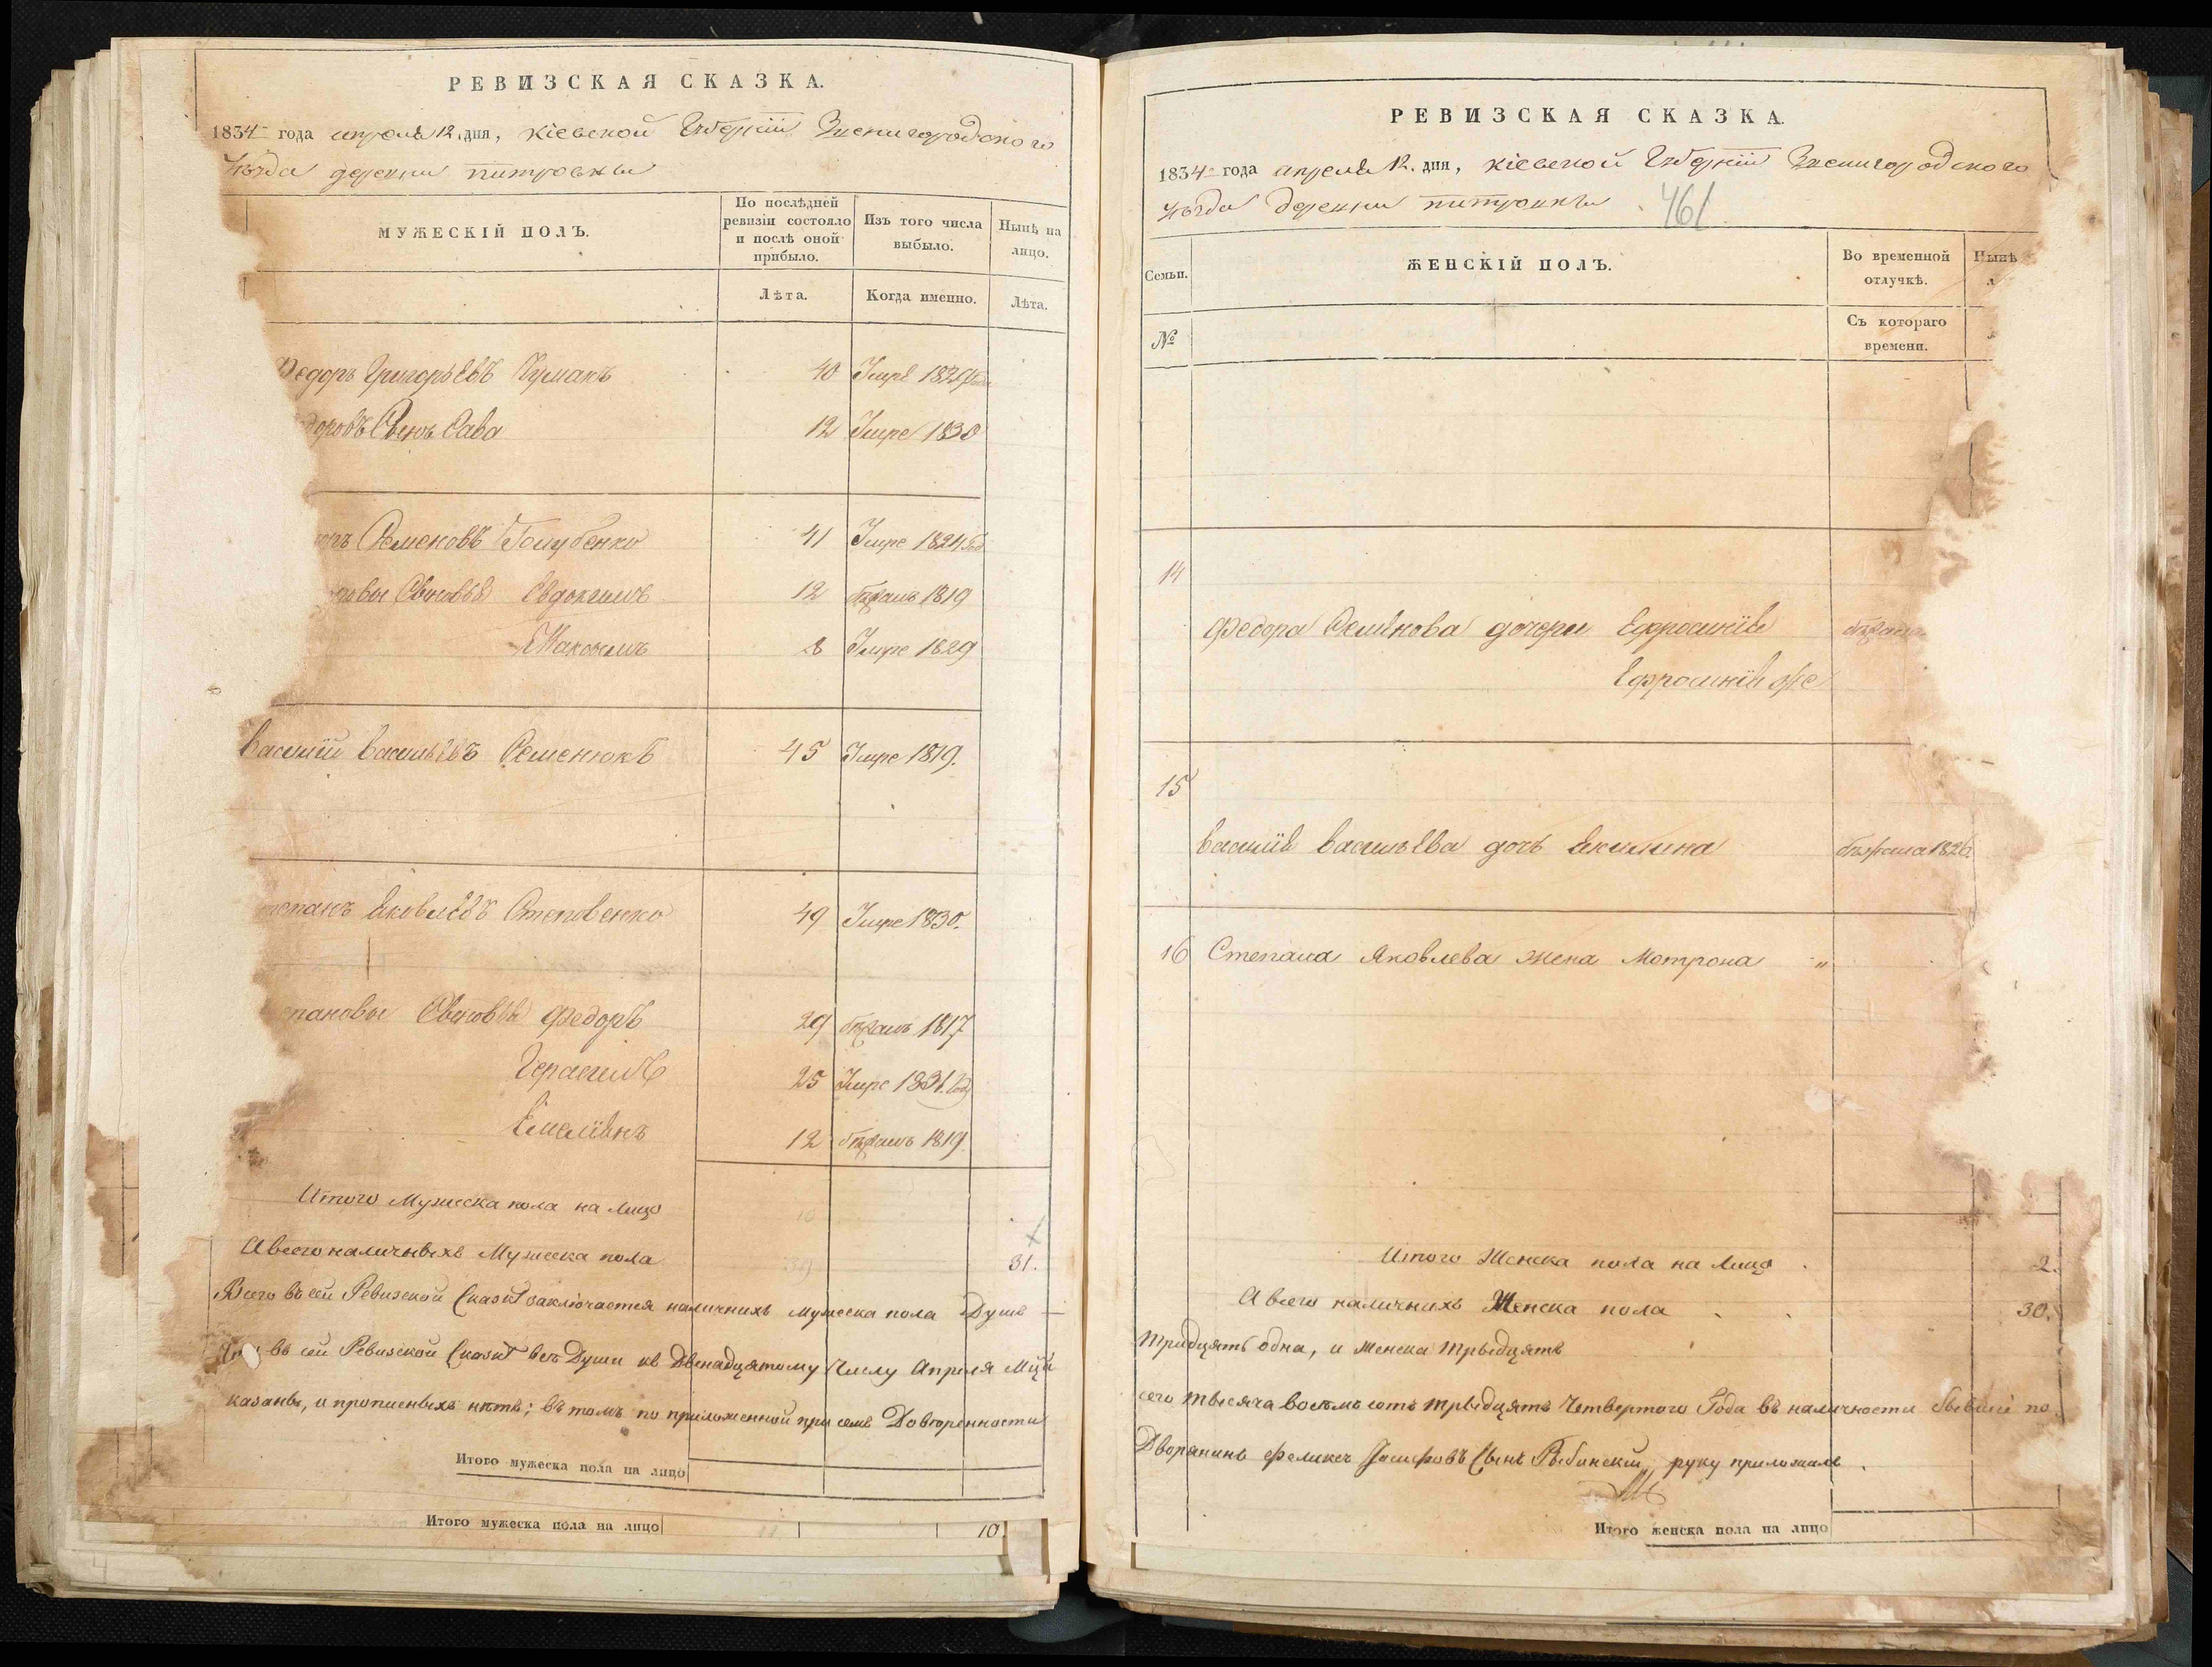 РЕВИЗСКАЯ СКАЗКА.
1834 года апреля 12 дня, кіевской Губерніи Звенигородского
уѣзда деревни питровки
МУЖЕСКІЙ ПОЛЪ.
По послѣдней ревизіи состояло и послѣ оной прибыло.
Изъ того числа выбыло.
Нынѣ на лицо.
Лѣта.
Когда именно.
Лѣта.
Федоръ Григорьевъ Кумакъ 40 Умре 1824 года
доровъ Сынъ Сава 12 Умре 1830
Семеновъ Голубенко 41 Умре 1824 год
Сыновья Евдокимъ 12 бѣжалъ 1819
Максымъ 8 Умре 1829
василій васильевъ Семенюкъ 45 Умре 1819.
тепанъ яковлевъ Степовенко 49 Умре 1830.
епановы Сыновья Федоръ 29 бѣжалъ 1817
Герасимъ 25 Умре 1831. году
Емеліянъ 12 бѣжалъ 1819
Итого Мужеска пола на лицо
А всего наличныхъ Мужеска пола 31.
Всего въ сей Ревизской Сказкѣ заключается наличнихъ мужеска пола Душъ
въ сей Ревизской Сказкѣ всѣ Души къ Двенадцятому Числу Апреля Мца
казаны, и прописныхъ нѣтъ; въ томъ по приложенной при семъ Довѣренности
Итого мужеска пола на лицо
Итого мужеска пола на лицо 10
РЕВИЗСКАЯ СКАЗКА.
1834 года апреля 12. дня, кіевской Губерніи Звенигородского
уѣзда деревни питровки 461
Семьи.
ЖЕНСКІЙ ПОЛЪ.
Во временной отлучкѣ.
Нынѣ
№
Съ котораго времени.
14
Федора Семенова дочери Ефросинія
Ефросинія же
15
василія васильева дочь Акилина бѣжала 1826
16 Степана Яковлева жена Мотрона "
Итого Женска пола на лицо 2.
А всего наличнихъ Женска пола 30.
тридцять одна, и женска трыдцять
сего тысяча восемьсотъ трыдцять Четвертого Года въ наличности бывшіе по
Дворянинъ Феликсъ Іосифовъ Сынъ Рыбинскій руку приложилъ.
Итого женска пола на лицо